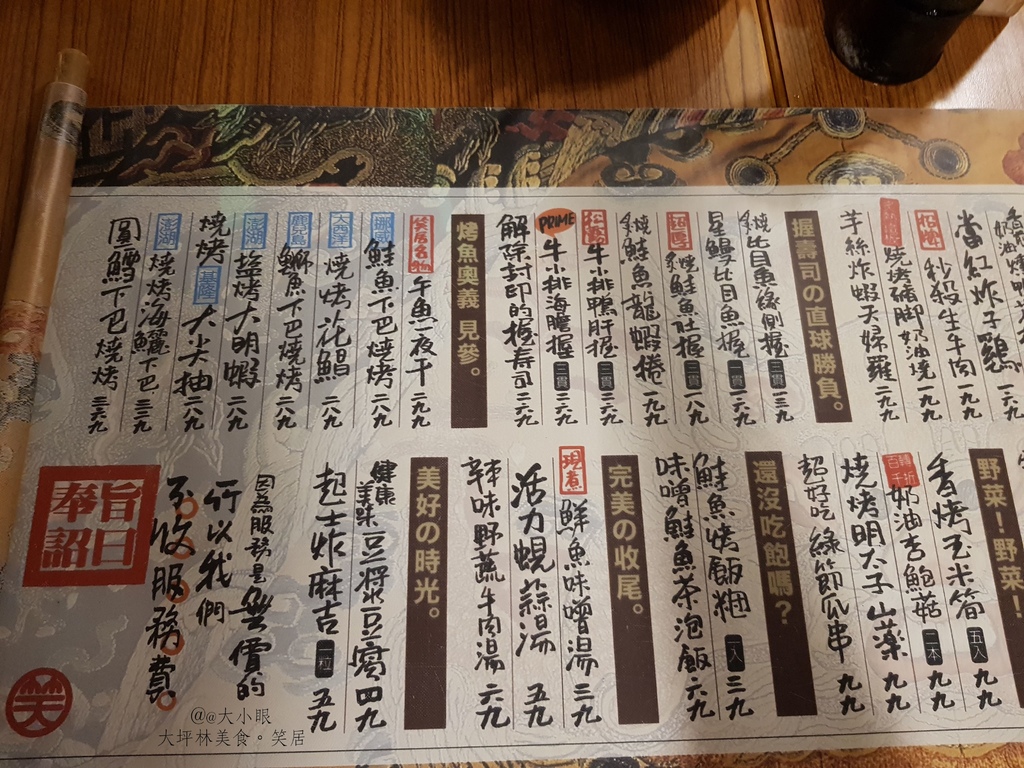 當紅炸子雞 一九九
招牌 秒殺生牛肉 一九九
燒烤豬脚奶油燒 一九九
芋絲炸蝦天婦羅 一九九
握壽司の直球勝負。
燒比目魚緣側握 三貫 一三九
星鰻比目魚握 一貫 一六九
超厚 炙燒鮭魚肚握 三貫 一八九
炙燒鮭魚龍蝦捲 一九九
松露 牛小排鴨肝握 三貫 二六九
PRIME 牛小排海膽握 三貫 二六九
解除封印的握壽司 二六九
烤魚奧義 見參。
笑居名物 午魚一夜干 二九九
挪威 鮭魚下巴燒烤 二八九
大西洋 燒烤花鯧 二八九
鹿兒島 鰤魚下巴燒烤 二八九
澎湖 鹽烤大明蝦 二八九
燒烤基隆大尖抽 二八九
澎湖 燒烤海鱺下巴 三三九
圓鱈下巴燒烤 三六九
野菜!野菜!
香烤玉米筍 五入 九九
百轉千折 奶油杏鮑菇 二本 九九
燒烤明太子山藥 九九
超好吃綠節瓜串 九九
還沒吃飽嗎?
鮭魚烤飯糰 一入 三九
味噌鮭魚茶泡飯 六九
完美の收尾。
現煮 鮮魚味噌湯 三九
活力蜆蒜湯 五九
辣味野蔬牛肉湯 六九
美好の時光。
健康美味豆漿豆腐 四九
起士炸麻吉 一粒 五九
因為服務是無價的
所以我們
不收服務費。
奉旨
詔曰
笑
@@大小眼
大坪林美食。笑居